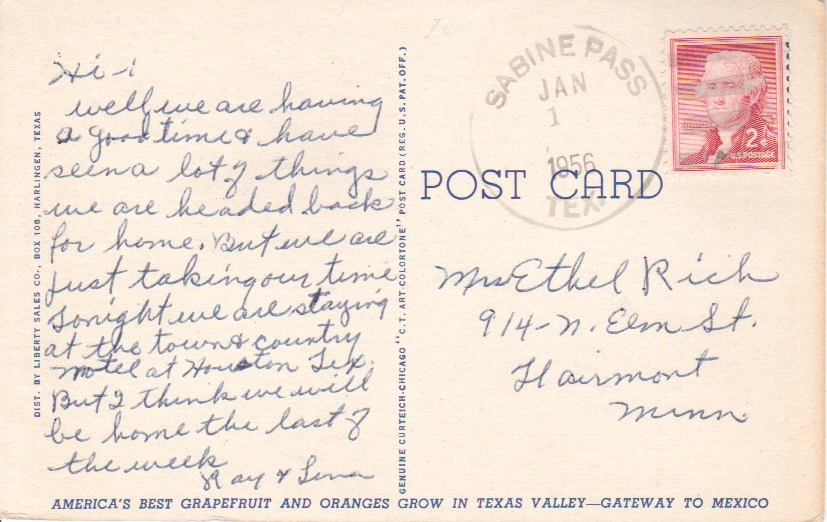 Hi -
well, we are having
a good time & have
seen a lot of things
we are headed back
for home. But we are
just taking our time
Tonight we are staying
at the town & country
motel at Houston Tex.
But I think we will
be home the last of
the week
Ray & Lena
DIST. BY LIBERTY SALES CO., BOX 108, HARLINGEN, TEXAS
GENUINE CURTEICH-CHICAGO "C.T. ART-COLORTONE" POST CARD (REG. U.S. PAT. OFF.)
SABINE PASS
JAN
1
1956
TEX.
2¢
U.S. POSTAGE
POST CARD
Mrs Ethel Rich
914-N. Elm St.
Fairmont
Minn.
AMERICA'S BEST GRAPEFRUIT AND ORANGES GROW IN TEXAS VALLEY—GATEWAY TO MEXICO